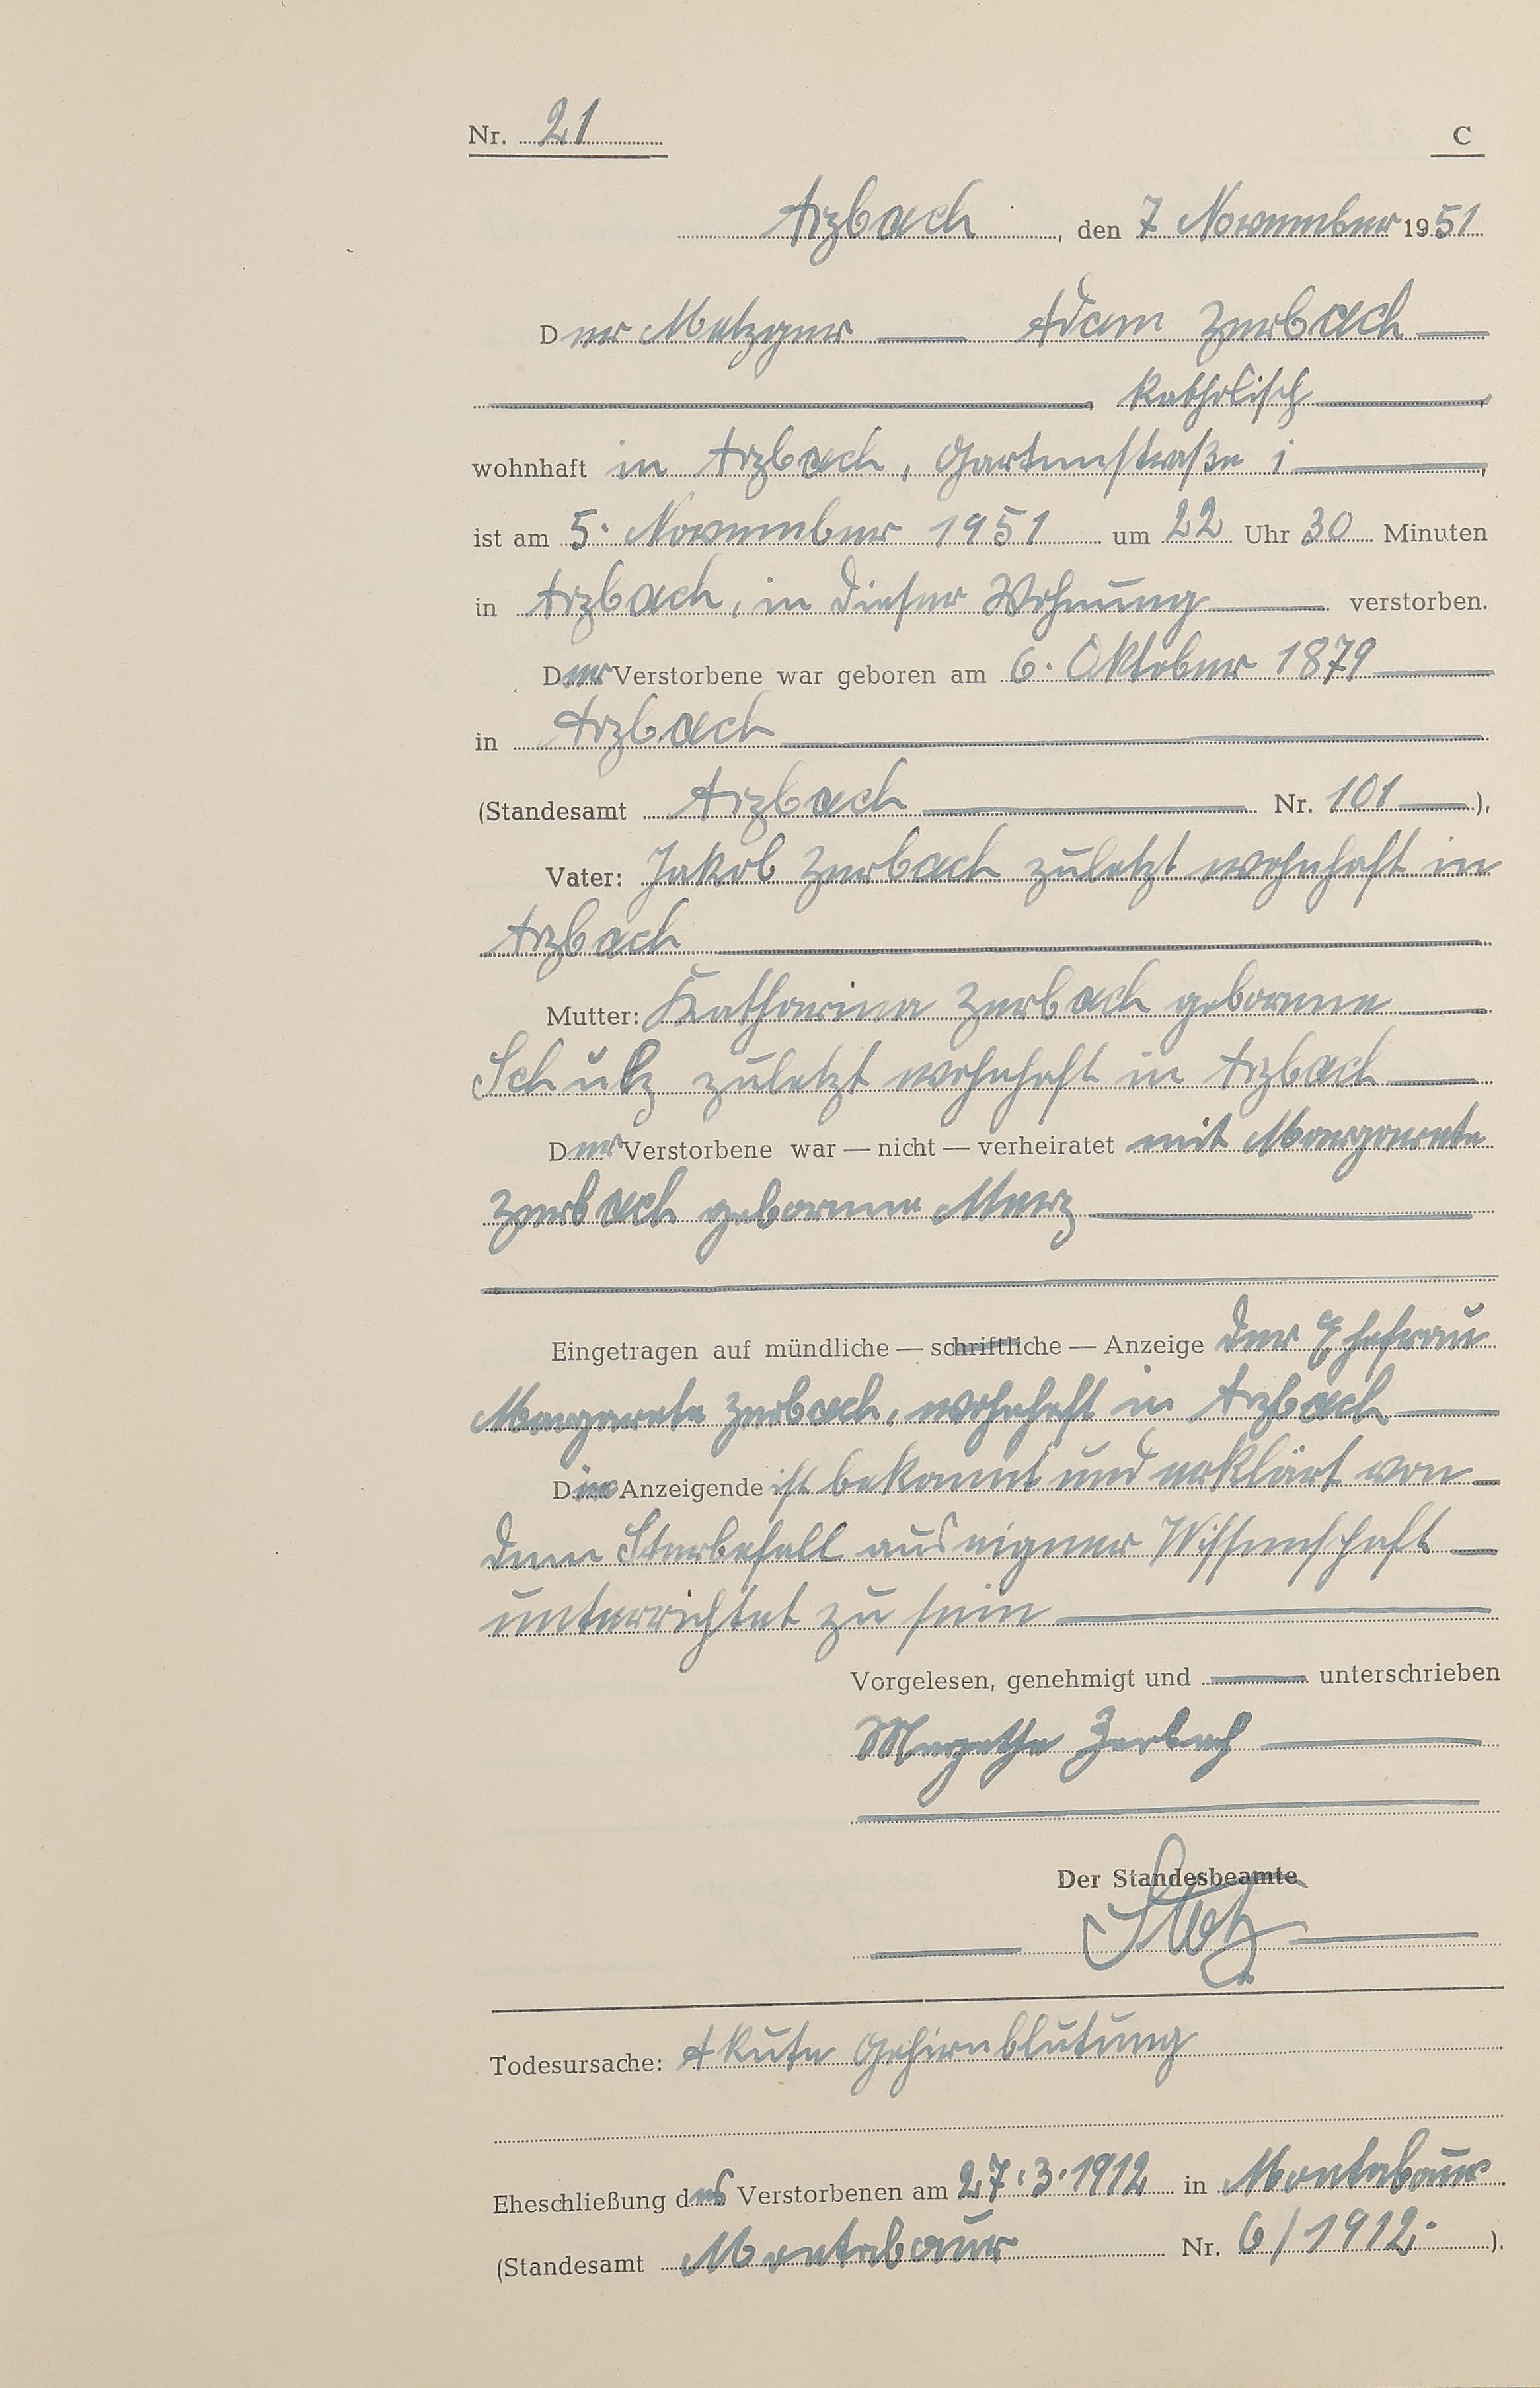 Nr. 21 C
Arzbach, den 7 November 1951
Der Metzger Adam Zerbach
katholisch
wohnhaft in Arzbach, Gartenstraße 1
ist am 5. November 1951 um 22 Uhr 30 Minuten
in Arzbach, in dieser Wohnung verstorben.
Der Verstorbene war geboren am 6. Oktober 1879
in Arzbach
(Standesamt Arzbach Nr. 101),
Vater: Jakob Zerbach zuletzt wohnhaft in
Arzbach
Mutter: Katharina Zerbach geborene
Schulz zuletzt wohnhaft in Arzbach
Der Verstorbene war — nicht — verheiratet mit Margarete
Zerbach geborene Merz
Eingetragen auf mündliche — schriftliche — Anzeige der Ehefrau
Margarete Zerbach, wohnhaft in Arzbach
Die Anzeigende ist bekannt und erklärt von
dem Sterbefall aus eigner Wissenschaft
unterrichtet zu sein
Vorgelesen, genehmigt und unterschrieben
Margethe Zerbach
Der Standesbeamte
Todesursache: Akute Gehirnblutung
Eheschließung des Verstorbenen am 27.3.1912 in Montabaur
(Standesamt Montabaur Nr. 6/1912.).